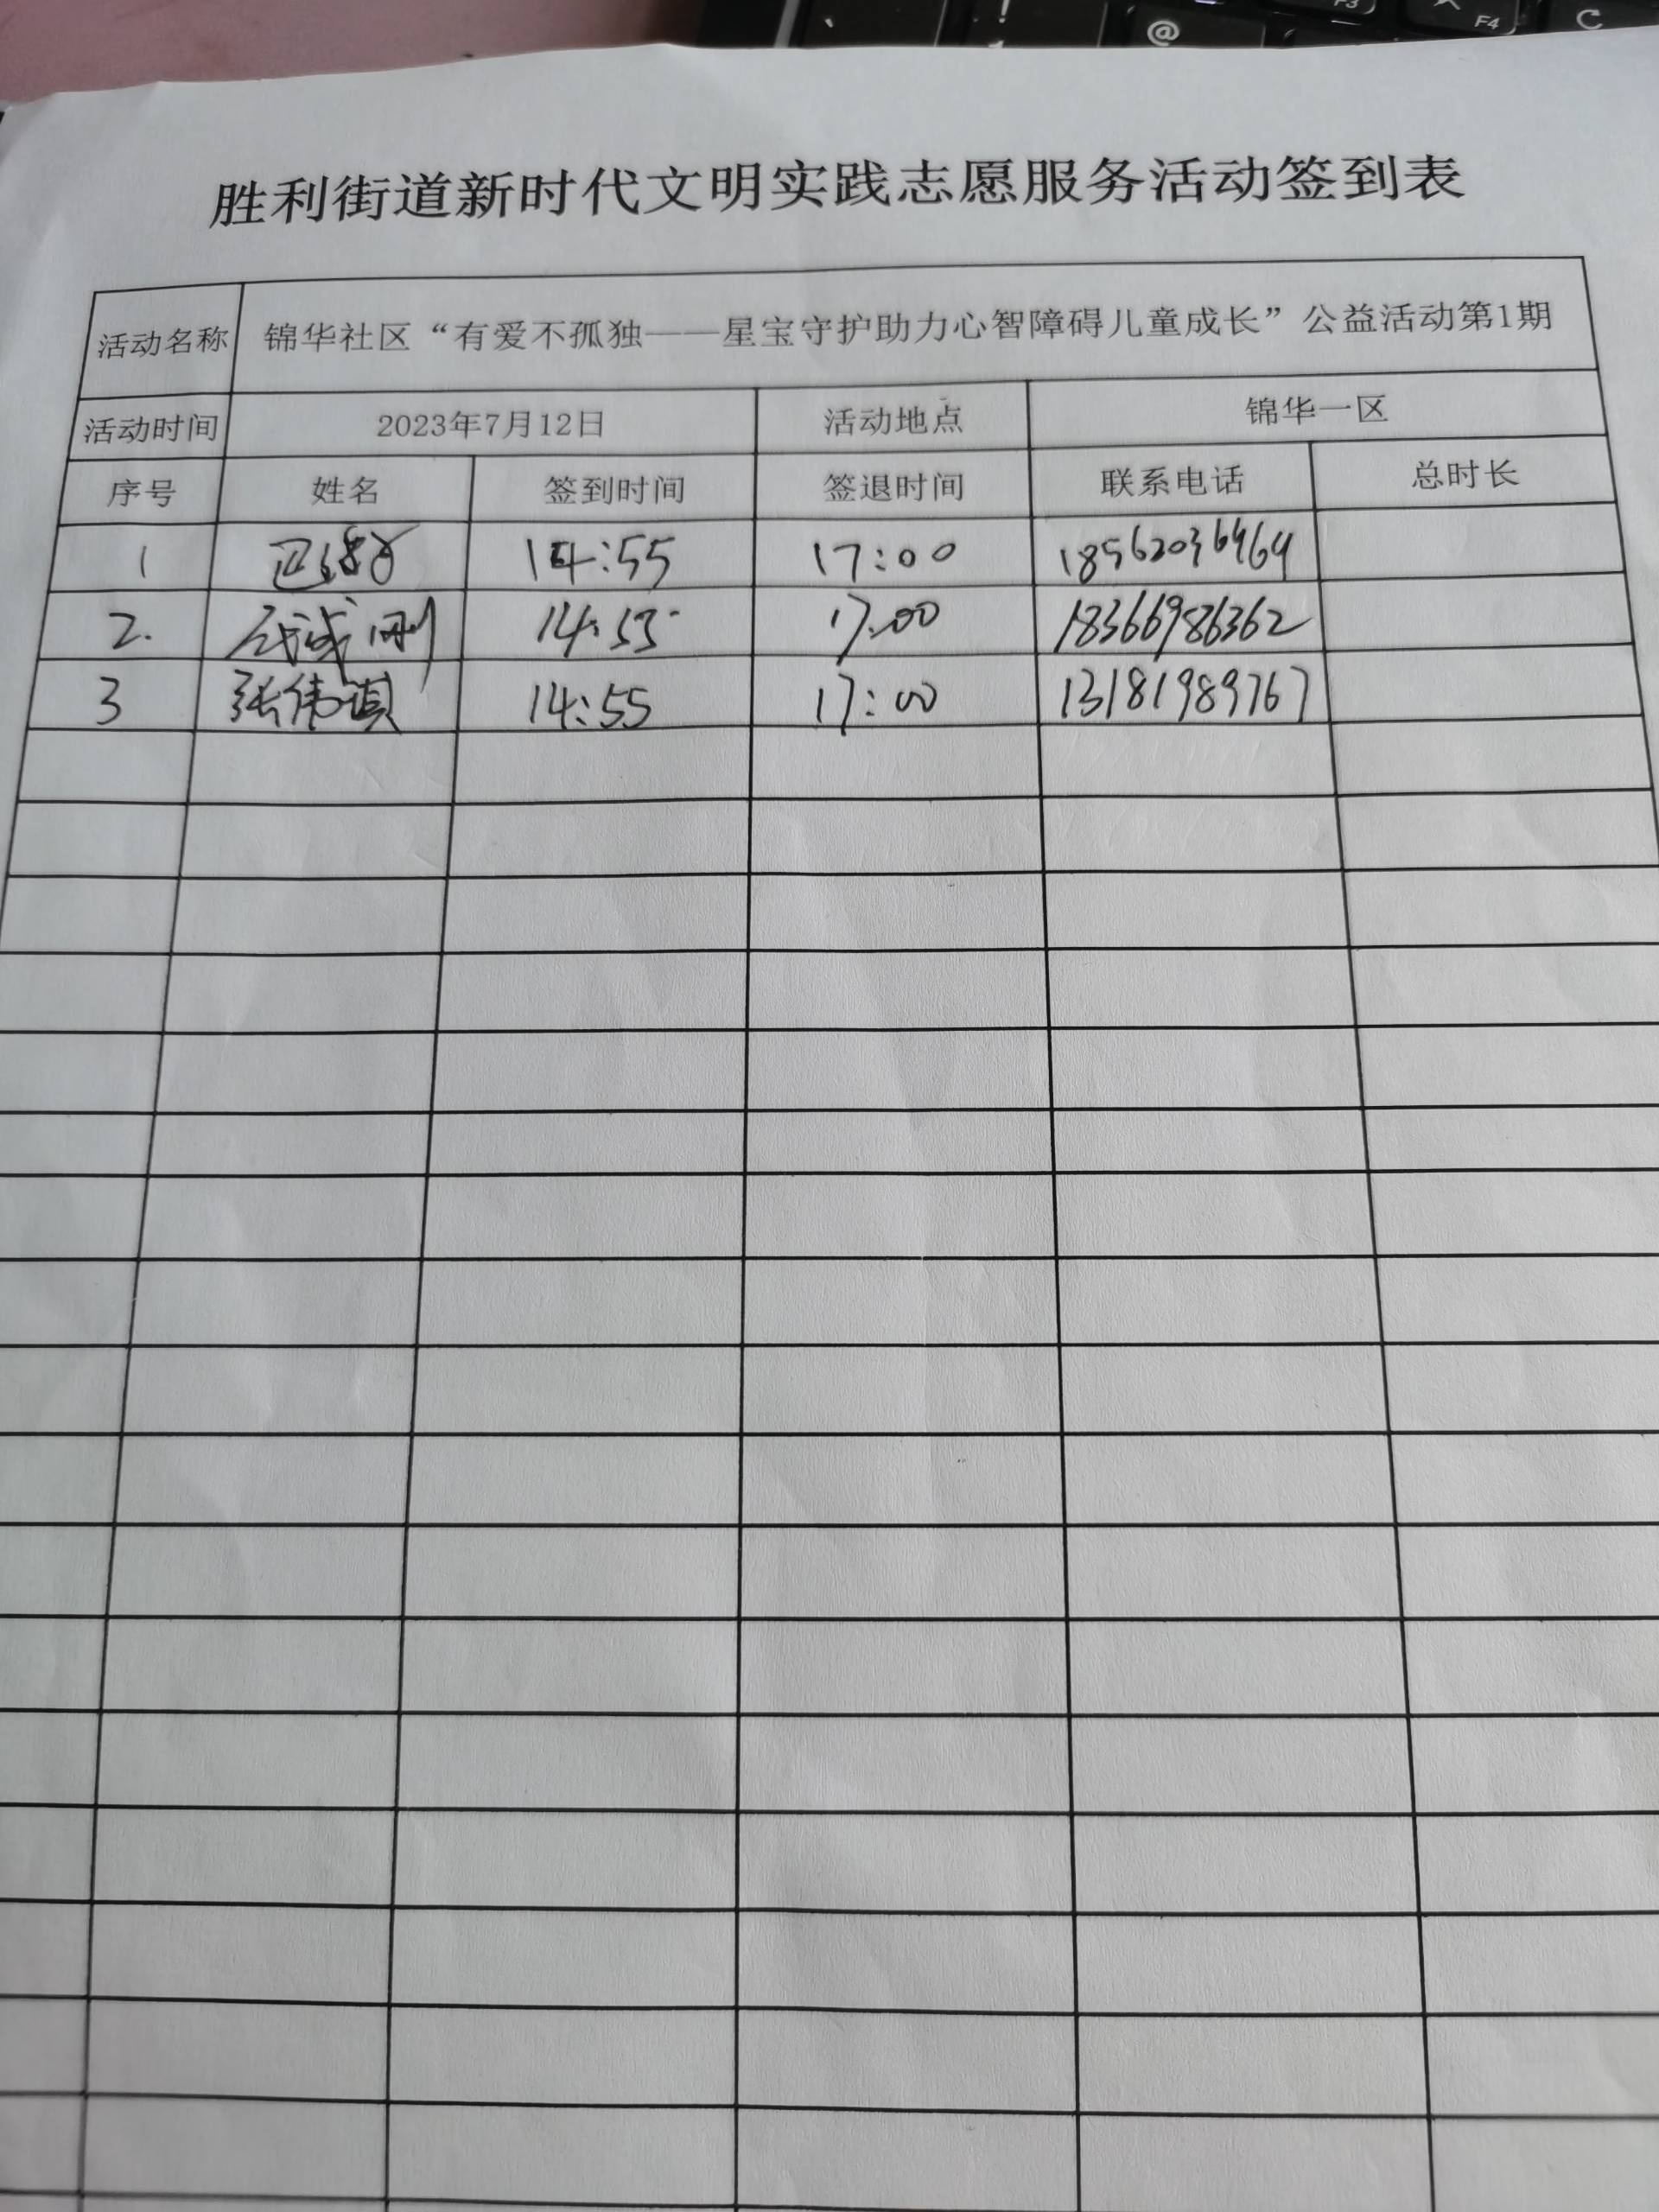 胜利街道新时代文明实践志愿服务活动签到表
活动名称 锦华社区“有爱不孤独——星宝守护助力心智障碍儿童成长”公益活动第1期
活动时间 2023年7月12日 活动地点 锦华一区
序号 姓名 签到时间 签退时间 联系电话 总时长
1 14:55 17:00 18562036464
2. 14:55 17:00 18366986362
3 张伟 14:55 17:00 13181989767